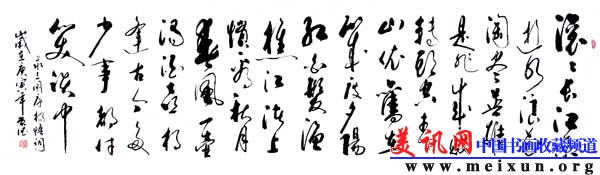 滚滚长江东
逝水浪花
淘尽英雄
是非成败
转头空青
山依旧在
几度夕阳
红白发渔
樵江渚上
惯看秋月
春风一壶
浊酒喜相
逢古今多
少事都付
笑谈中
录三国序杨慎词
岁在庚寅年
美讯网 中国书画收藏频道
www.meixun.org